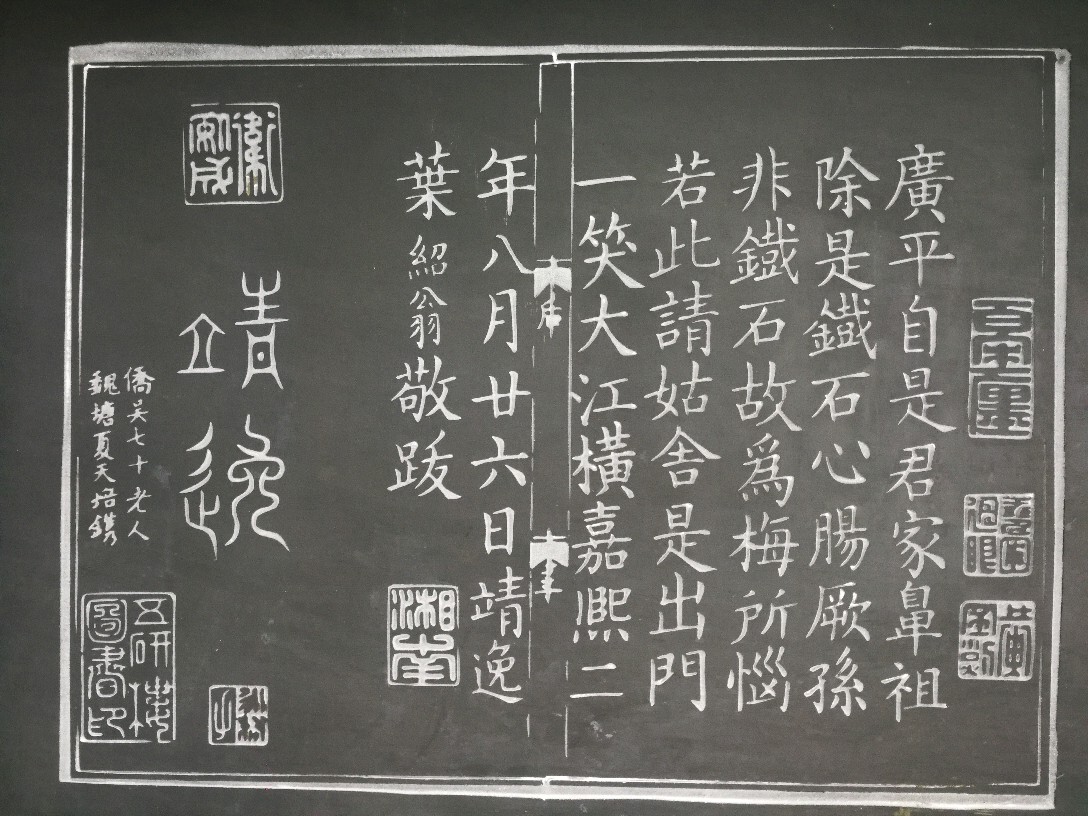 廣平自是君家鼻祖
除是鐵石心腸厥孫
非鐵石故為梅所惱
若此請姑舍是出門
一笑大江橫嘉熙二
年八月廿六日靖逸
葉紹翁敬跋
湘南
靖逸
僑吳七十老人
魏塘夏天培鐫
五研樓
圖書印